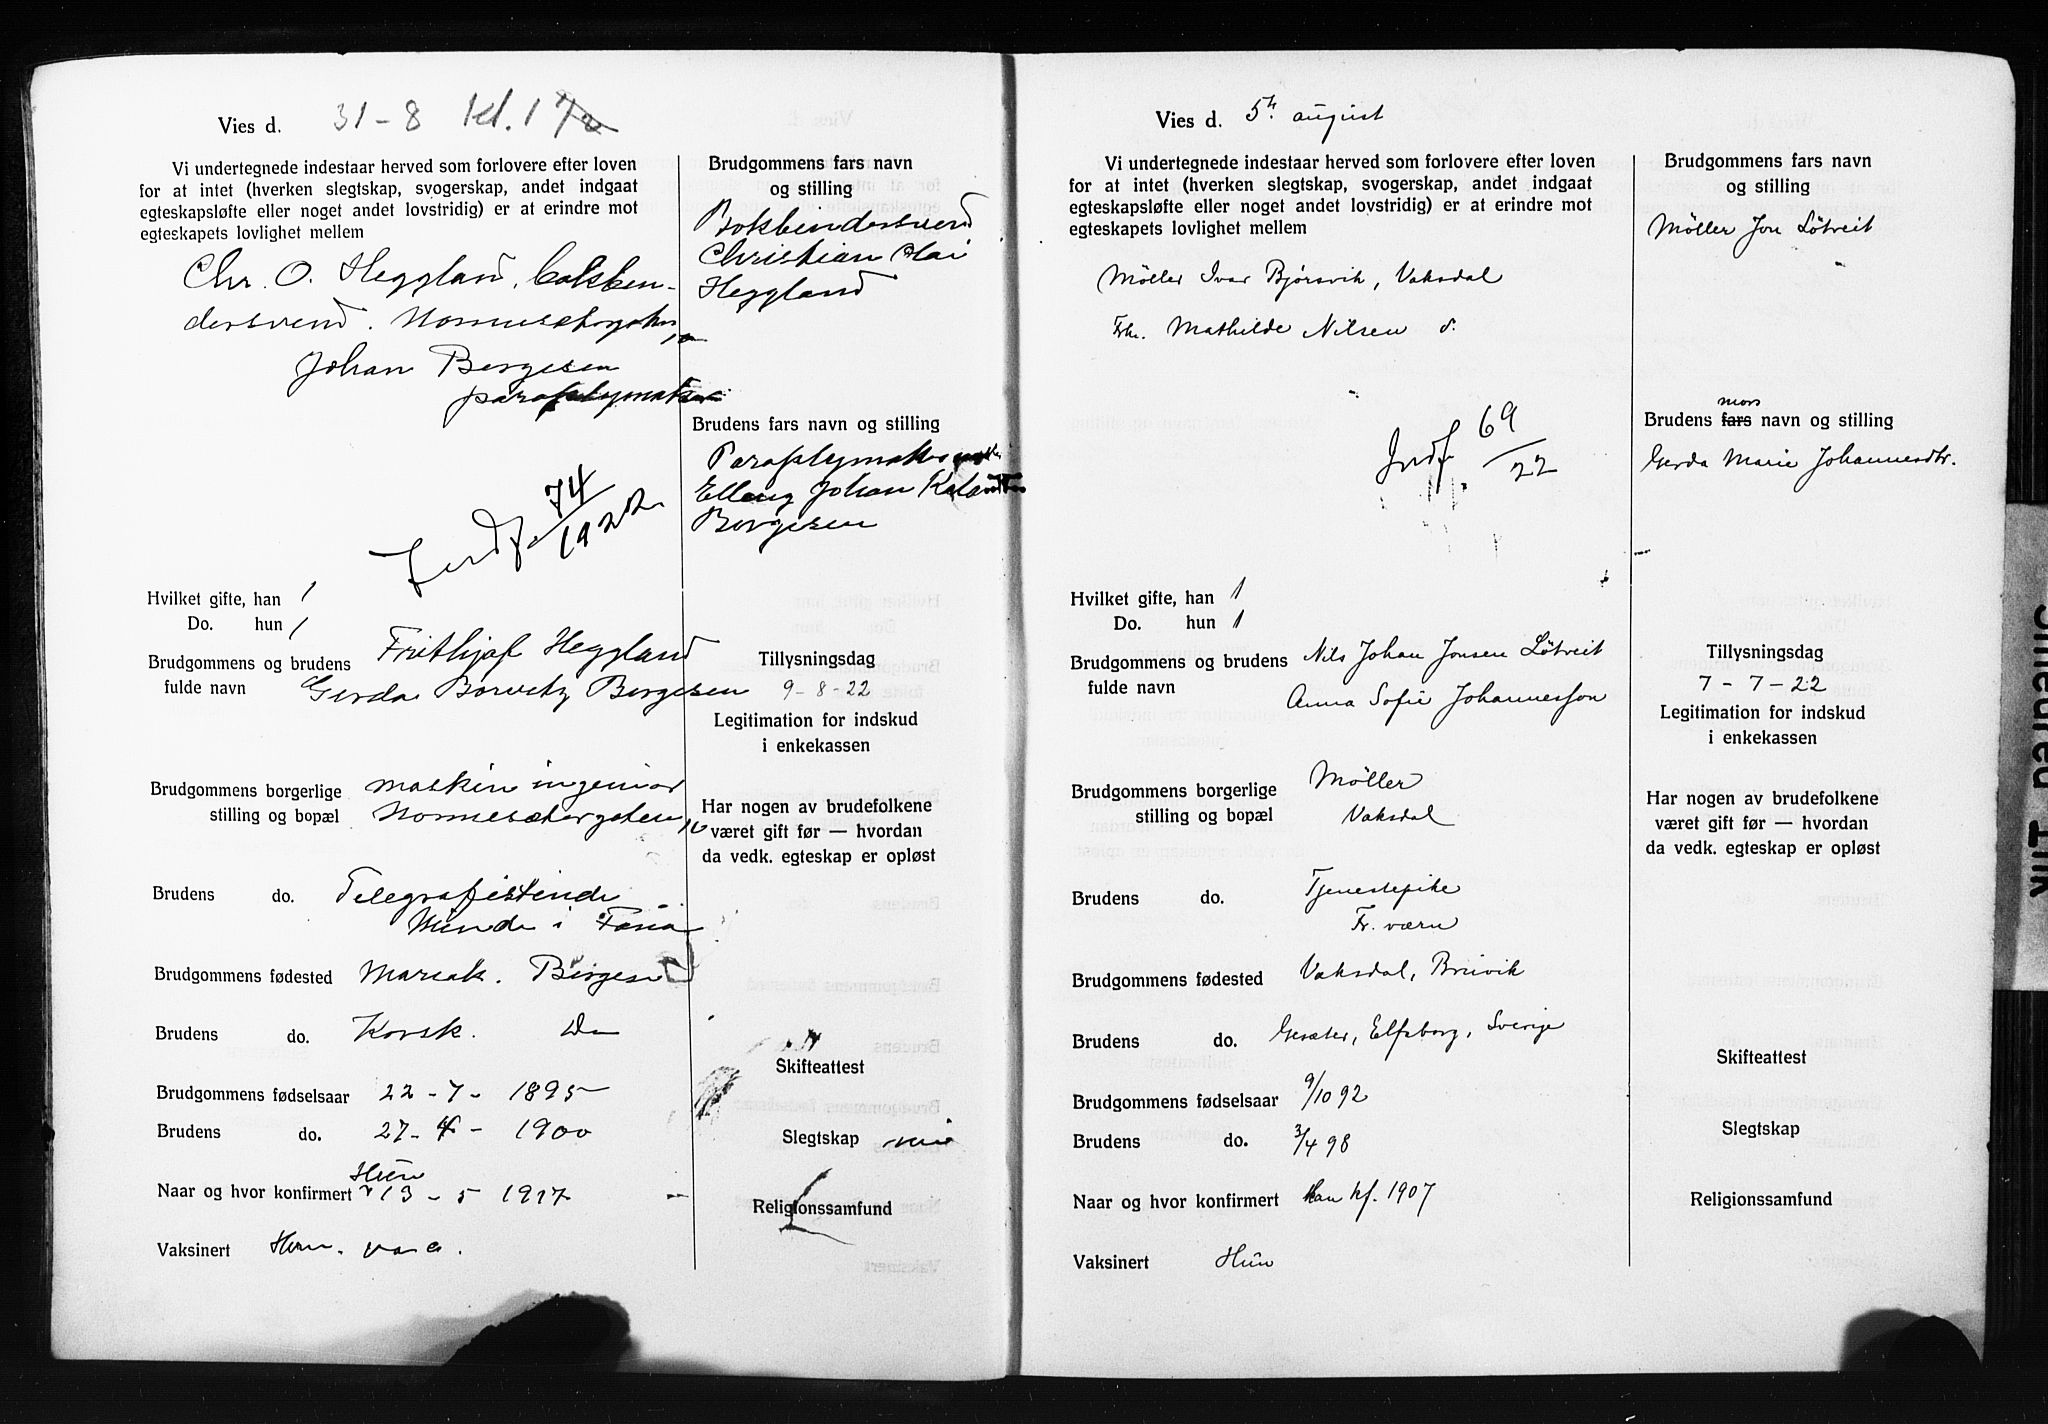 Vies d. 31-8 kl. 1
Vi undertegnede indestaar herved som forlovere efter loven
for at intet (hverken slegtskap, svogerskap, andet indgaat
egteskapsløfte eller noget andet lovstridig) er at erindre mot
egteskapets lovlighet mellem
Chr. O. Heggland, bokben-
dersvend.
Johan Børgesen
paraplymaker
Indf. 74/1922
Hvilket gifte, han 1
Do. hun 1
Brudgommens og brudens Frithjof Heggland
fulde navn Gerda Børgesen
Brudgommens borgerlige maskiningeniør
stilling og bopæl
Brudens do. Telegrafistinde
Minde i Fana
Brudgommens fødested Mariak. Bergen
Brudens do. Korsk. Do
Brudgommens fødselsaar 22-7-1895
Brudens do. 27-4-1900
Hun
Naar og hvor konfirmert 13-5 1917
Vaksinert Hun.
Brudgommens fars navn
og stilling
Bokbindersvend
Christian
Heggland
Brudens fars navn og stilling
Paraplymaker
Elling Johan
Børgesen
Tillysningsdag
9-8-22
Legitimation for indskud
i enkekassen
Har nogen av brudefolkene
været gift før — hvordan
da vedk. egteskap er opløst
Skifteattest
Slegtskap nei
Religionssamfund
Vies d. 5te august
Vi undertegnede indestaar herved som forlovere efter loven
for at intet (hverken slegtskap, svogerskap, andet indgaat
egteskapsløfte eller noget andet lovstridig) er at erindre mot
egteskapets lovlighet mellem
Møller Ivar Bjørsvik, Vaksdal
Frk. Mathilde Nilsen d.
Indf. 69/22
Hvilket gifte, han 1
Do. hun 1
Brudgommens og brudens Nils Johan Jonsen Løtveit
fulde navn Anna Sofie Johannesson
Brudgommens borgerlige Møller
stilling og bopæl Vaksdal
Brudens do. Tjenestepike
Fr. værn
Brudgommens fødested Vaksdal, Bruvik
Brudens do. Elfsborg, Sverige
Brudgommens fødselsaar 9/10 92
Brudens do. 3/4 98
Naar og hvor konfirmert Han kf. 1907
Vaksinert Hun
Brudgommens fars navn
og stilling
Møller Jon Løtveit
mors
Brudens fars navn og stilling
Gerda Marie Johannesdtr.
Tillysningsdag
7-7-22
Legitimation for indskud
i enkekassen
Har nogen av brudefolkene
været gift før — hvordan
da vedk. egteskap er opløst
Skifteattest
Slegtskap
Religionssamfund